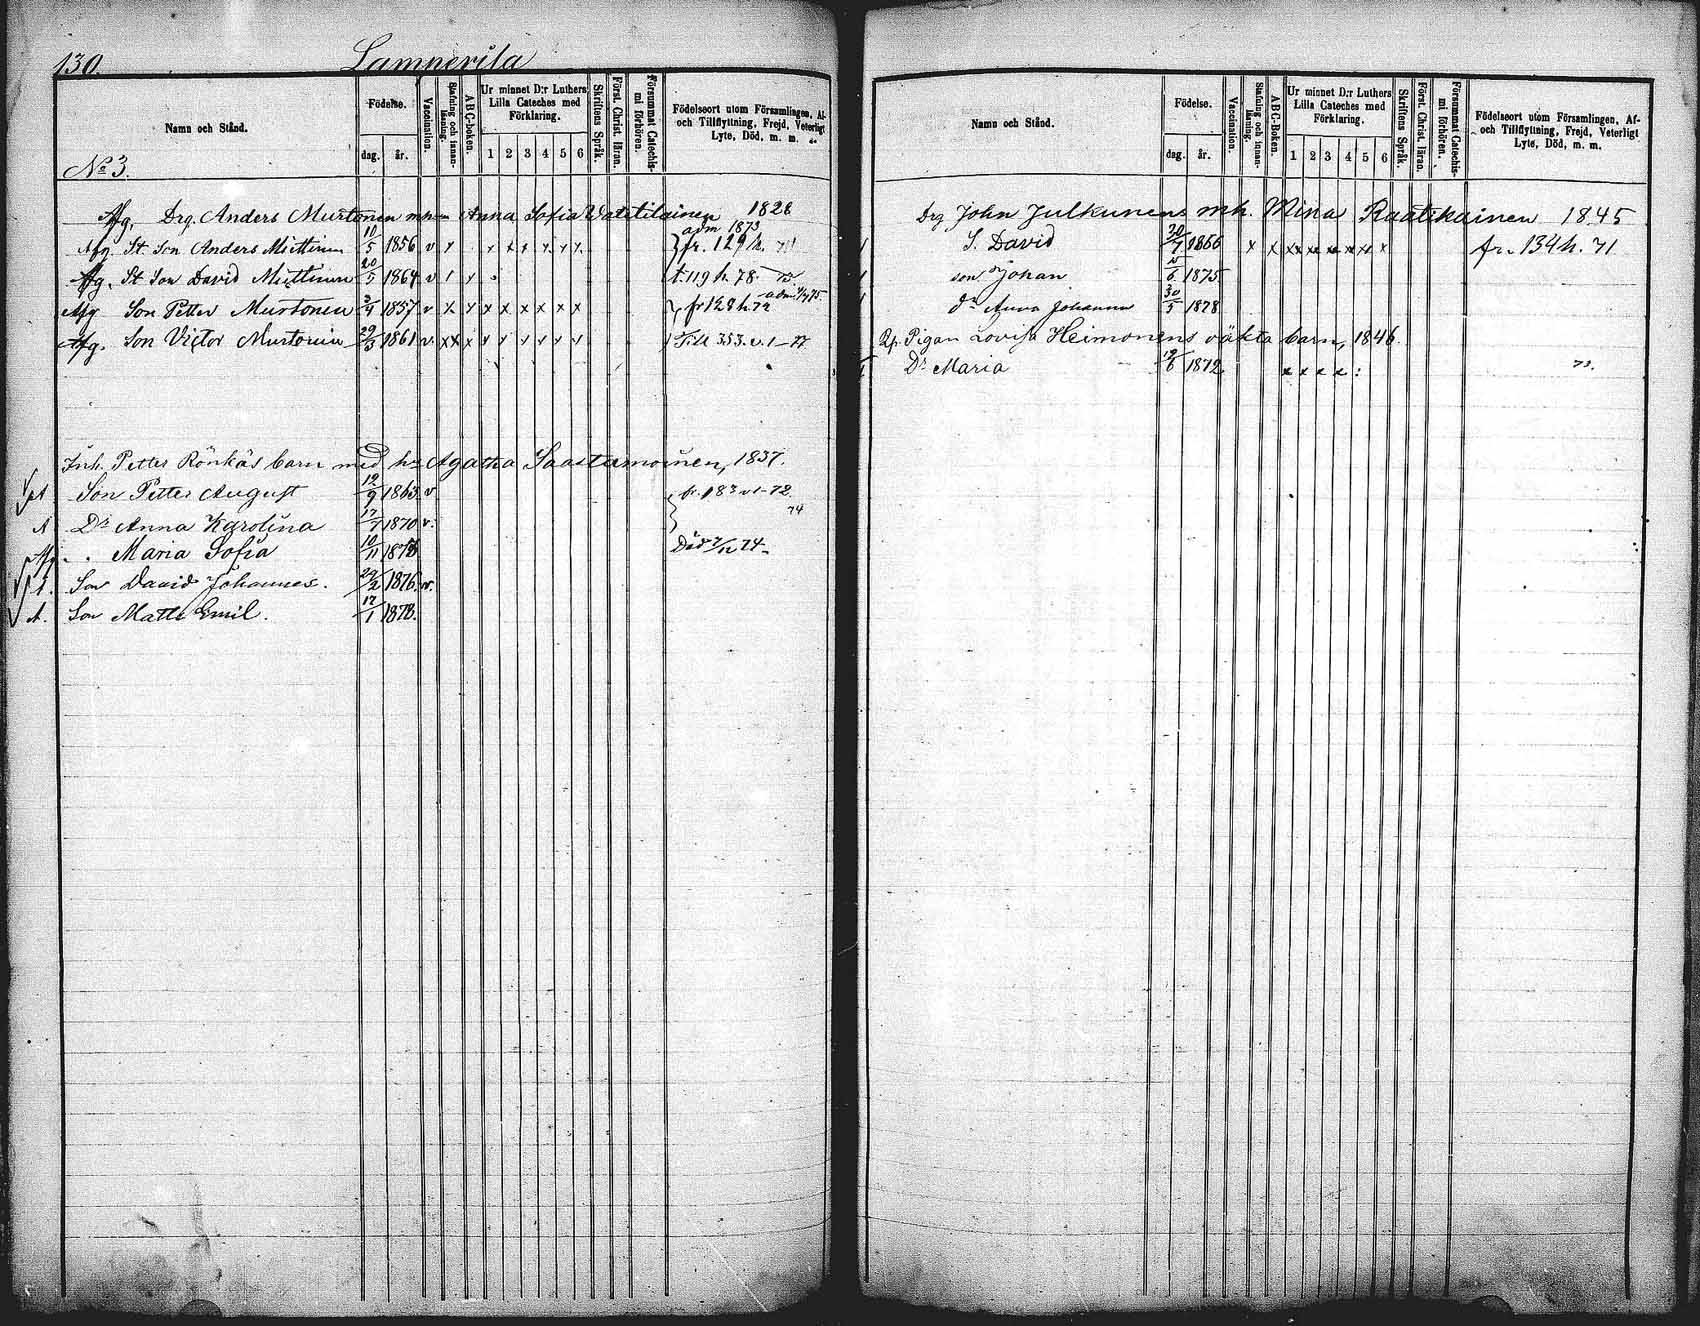 130. Lamperila
Namn och Stånd.
Födelse.
dag. år.
Vaccination.
Stafning och innan-läsning.
A B C-boken.
Ur minnet D:r Luthers Lilla Cateches med Förklaring.
1 2 3 4 5 6
Skriftens Språk.
Först. Christ. läran.
Försummat Catechis-mi förhören.
Födelseort utom Församlingen, Af- och Tillflyttning, Frejd, Veterligt Lyte, Död, m. m.
No 3.
Afg. Drg. Anders Murtonen m h Anna Sofia Vatitilainen 1828
Afg. St. Son Anders Miettinen 10/5 1856 v x x x x x x x fr. 129 h. adm 1873
Afg. St. Son David Miettinen 20/5 1864 v t. 119 h. 78
Afg. Son Petter Murtonen 3/4 1857 v x x x x x x x x fr 128 h. 72 adm 75
Afg. Son Victor Murtonen 29/3 1861 v. x x x x x x x x x Till 353. v. 1-77
Inh. Petter Rönkäs barn med h. Agatha Saastamoinen, 1837.
Son Petter August 12/9 1863 v fr. 183 v 1-72
A Dr Anna Karolina 17/7 1870 v. 74
Afg. Maria Sofia 10/11 1873 Död 7/12 74
Son David Johannes. 29/2 1876. v.
A. Son Matts Emil. 17/1 1878.
Namn och Stånd.
Födelse.
dag. år.
Vaccination.
Stafning och innan-läsning.
A B C-Boken.
Ur minnet D:r Luthers Lilla Cateches med Förklaring.
1 2 3 4 5 6
Skriftens Språk.
Först. Christ. läran.
Försummat Catechis-mi förhören.
Födelseort utom Församlingen, Af- och Tillflyttning, Frejd, Veterligt Lyte, Död, m. m.
Drg John Julkunens m h. Mina Raatikainen 1845
S. David 1866 x x x x x x x x x fr. 134 h. 71
son Johan 1875
dr Anna Johanna 30/5 1878
Pigan Lovisa Heimonens oäkta barn, 1846.
Dr Maria 12/6 1872 x x x x 73.